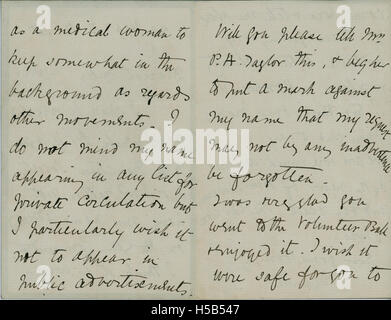 as a medical woman to
keep somewhat in the
background as regards
other movements. I
do not mind my name
appearing in any list "for
private circulation" but
I particularly wish it
not to appear in
public advertisements.
Will you please tell Mrs
P.A. Taylor this, & beg her
to put a mark against
my name that my request
may not by any inadvertence
be forgotten.
I was very glad you
went to the Volunteer Ball
& enjoyed it. I wish it
were safe for you to
alamy
H5B547
www.alamy.com